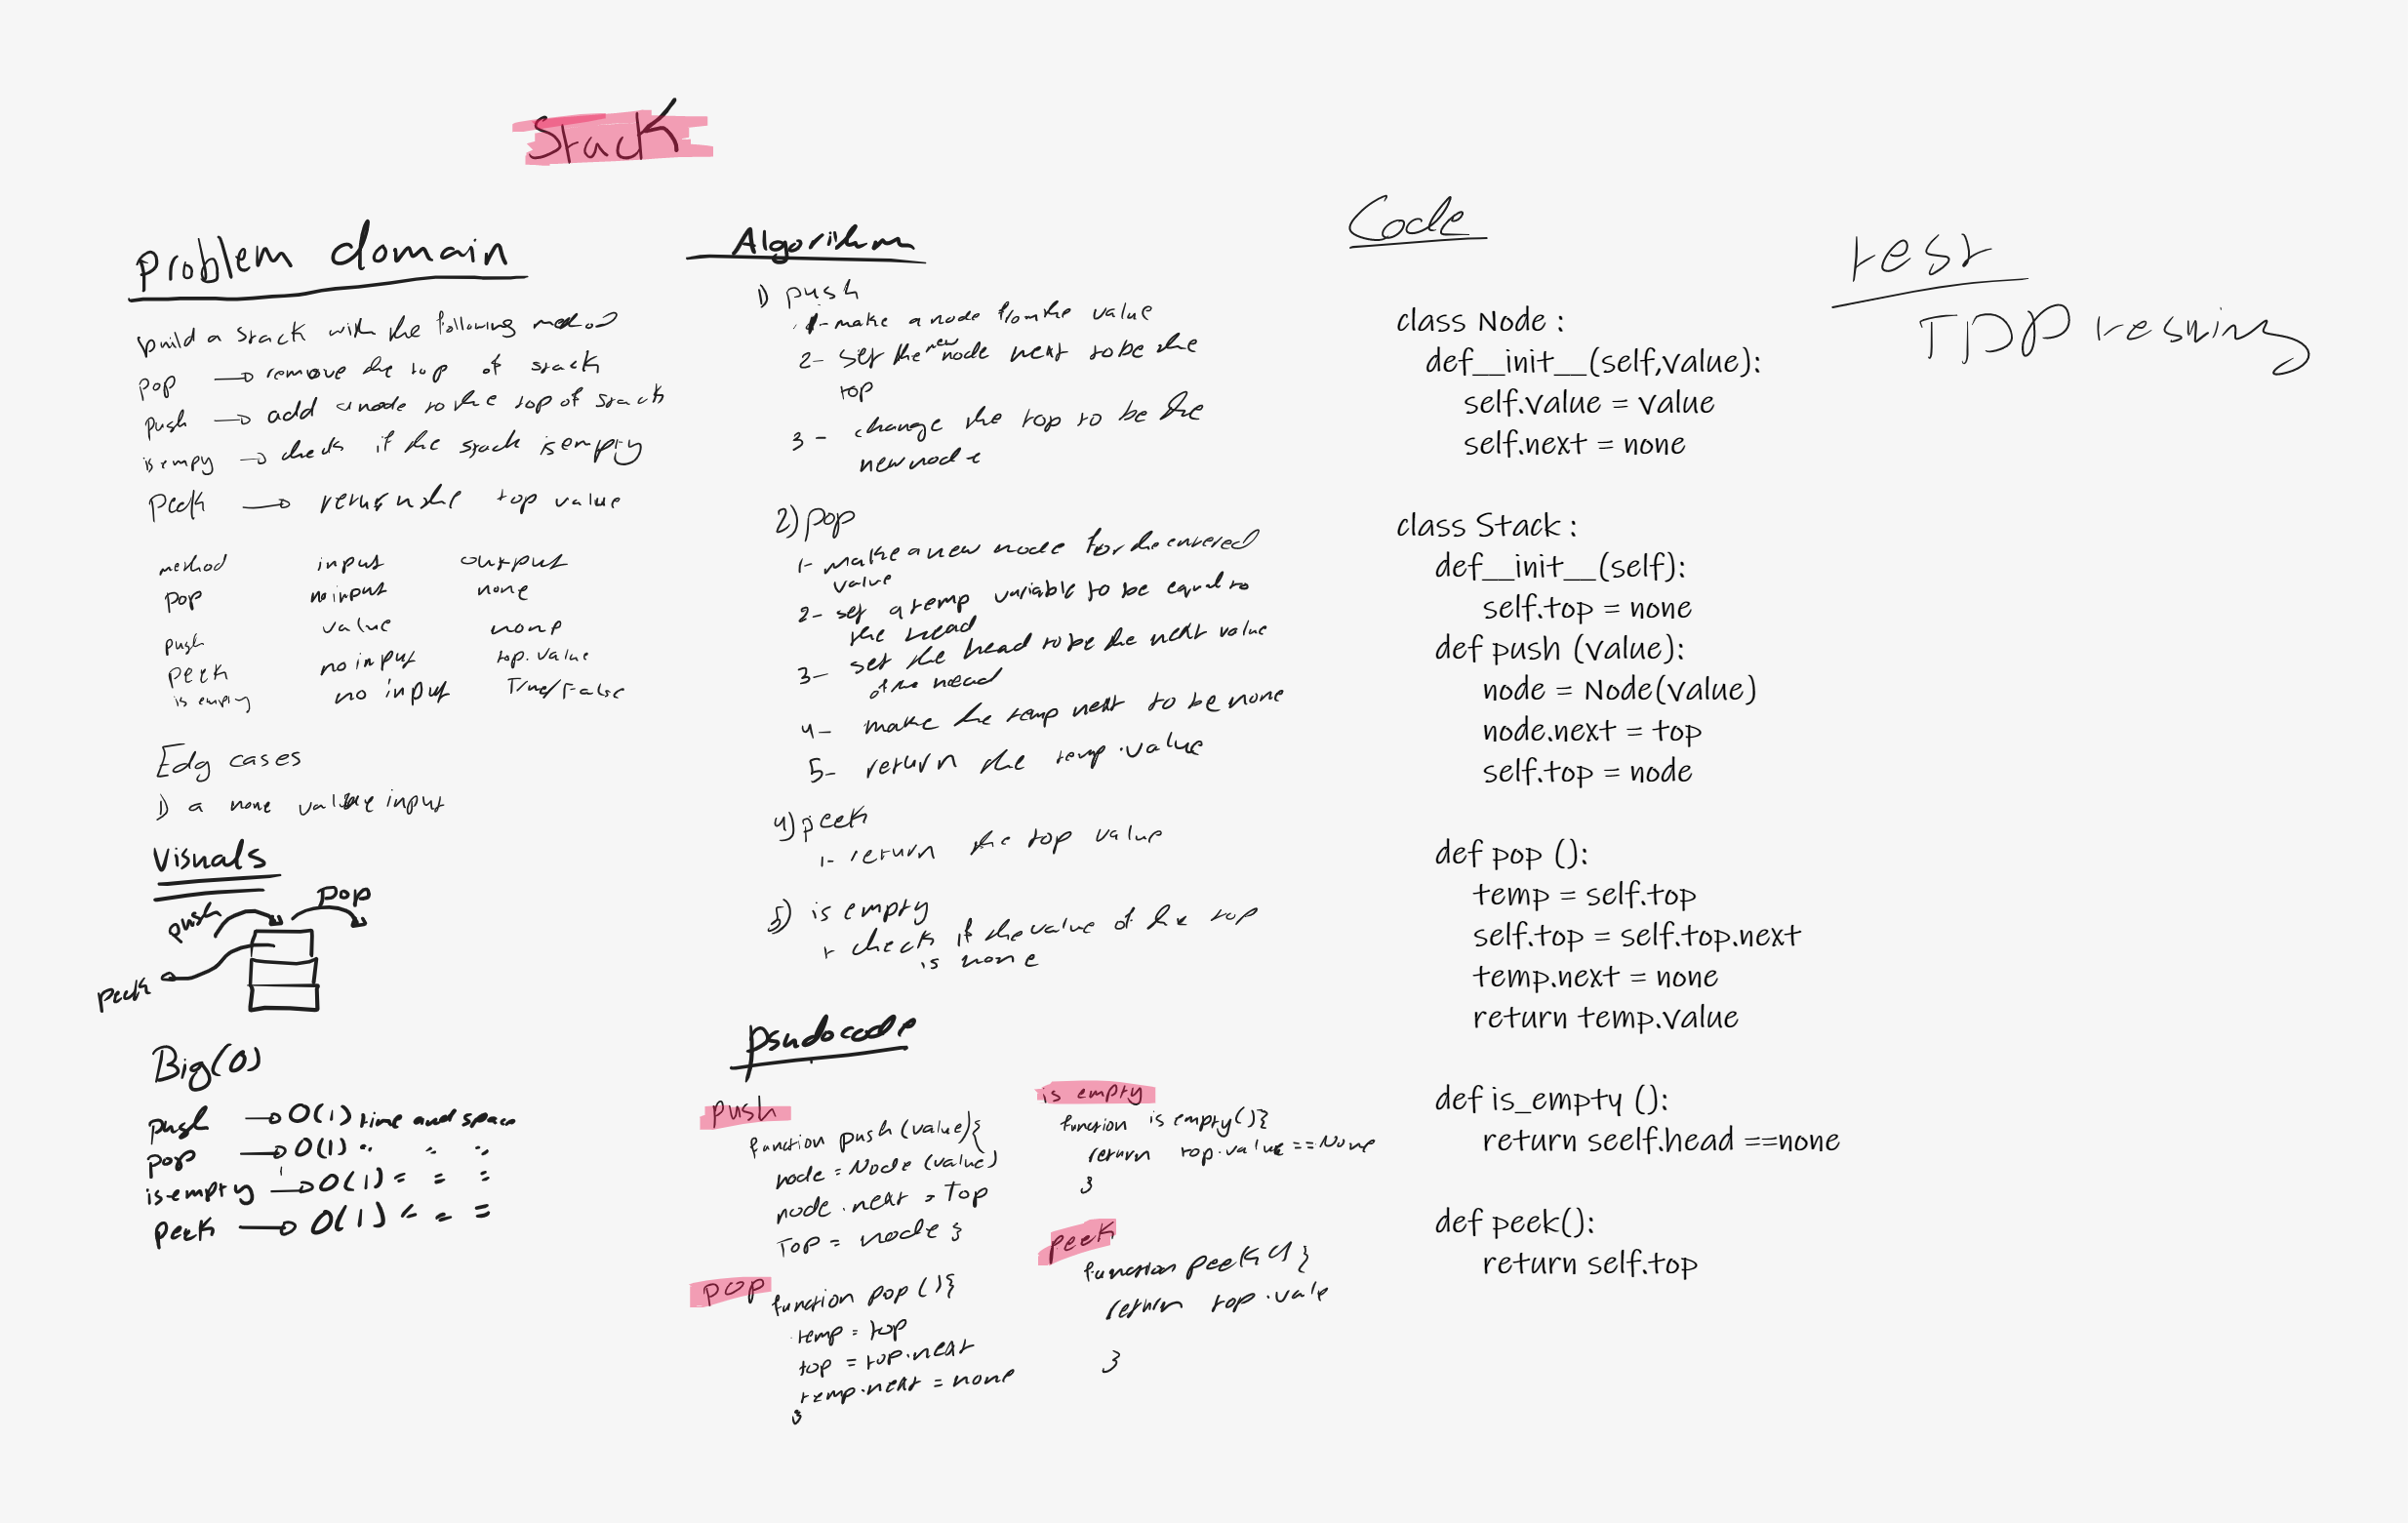 Stack
Problem domain
build a stack with the following method
pop → remove the top of stack
push → add a node to the top of stack
is empy → checks if the stack is empty
Peek → return the top value
method input output
pop no input none
push value none
peek no input top.value
is empty no input True/False
Edg cases
1) a none value input
Visuals
push
pop
peek
Big(O)
push → O(1) time and space
pop → O(1) " " "
is empty → O(1) = = =
Peek → O(1) = = =
Algorithm
1) push
1- make a node from the value
2- Set the new node next to be the
top
3- change the top to be the
new node
2) pop
1- make a new node for the entered
value
2- set a temp variable to be equal to
the head
3- set the head to be the next value
of the head
4- make the temp next to be none
5- return the temp.value
4) peek
1- return the top value
5) is empty
1- check if the value of the top
is none
psudocode
push
function push (value){
node = Node (value)
node.next = Top
Top = node }
pop
function pop (){
temp = top
top = top.next
temp.next = none
}
is empty
function is empty(){
return top.value == None
}
peek
function peek () {
return top.vale
}
Code
class Node :
def__init__(self,value):
self.value = value
self.next = none
class Stack :
def__init__(self):
self.top = none
def push (value):
node = Node(value)
node.next = top
self.top = node
def pop ():
temp = self.top
self.top = self.top.next
temp.next = none
return temp.value
def is_empty ():
return seelf.head ==none
def peek():
return self.top
test
TDD testing